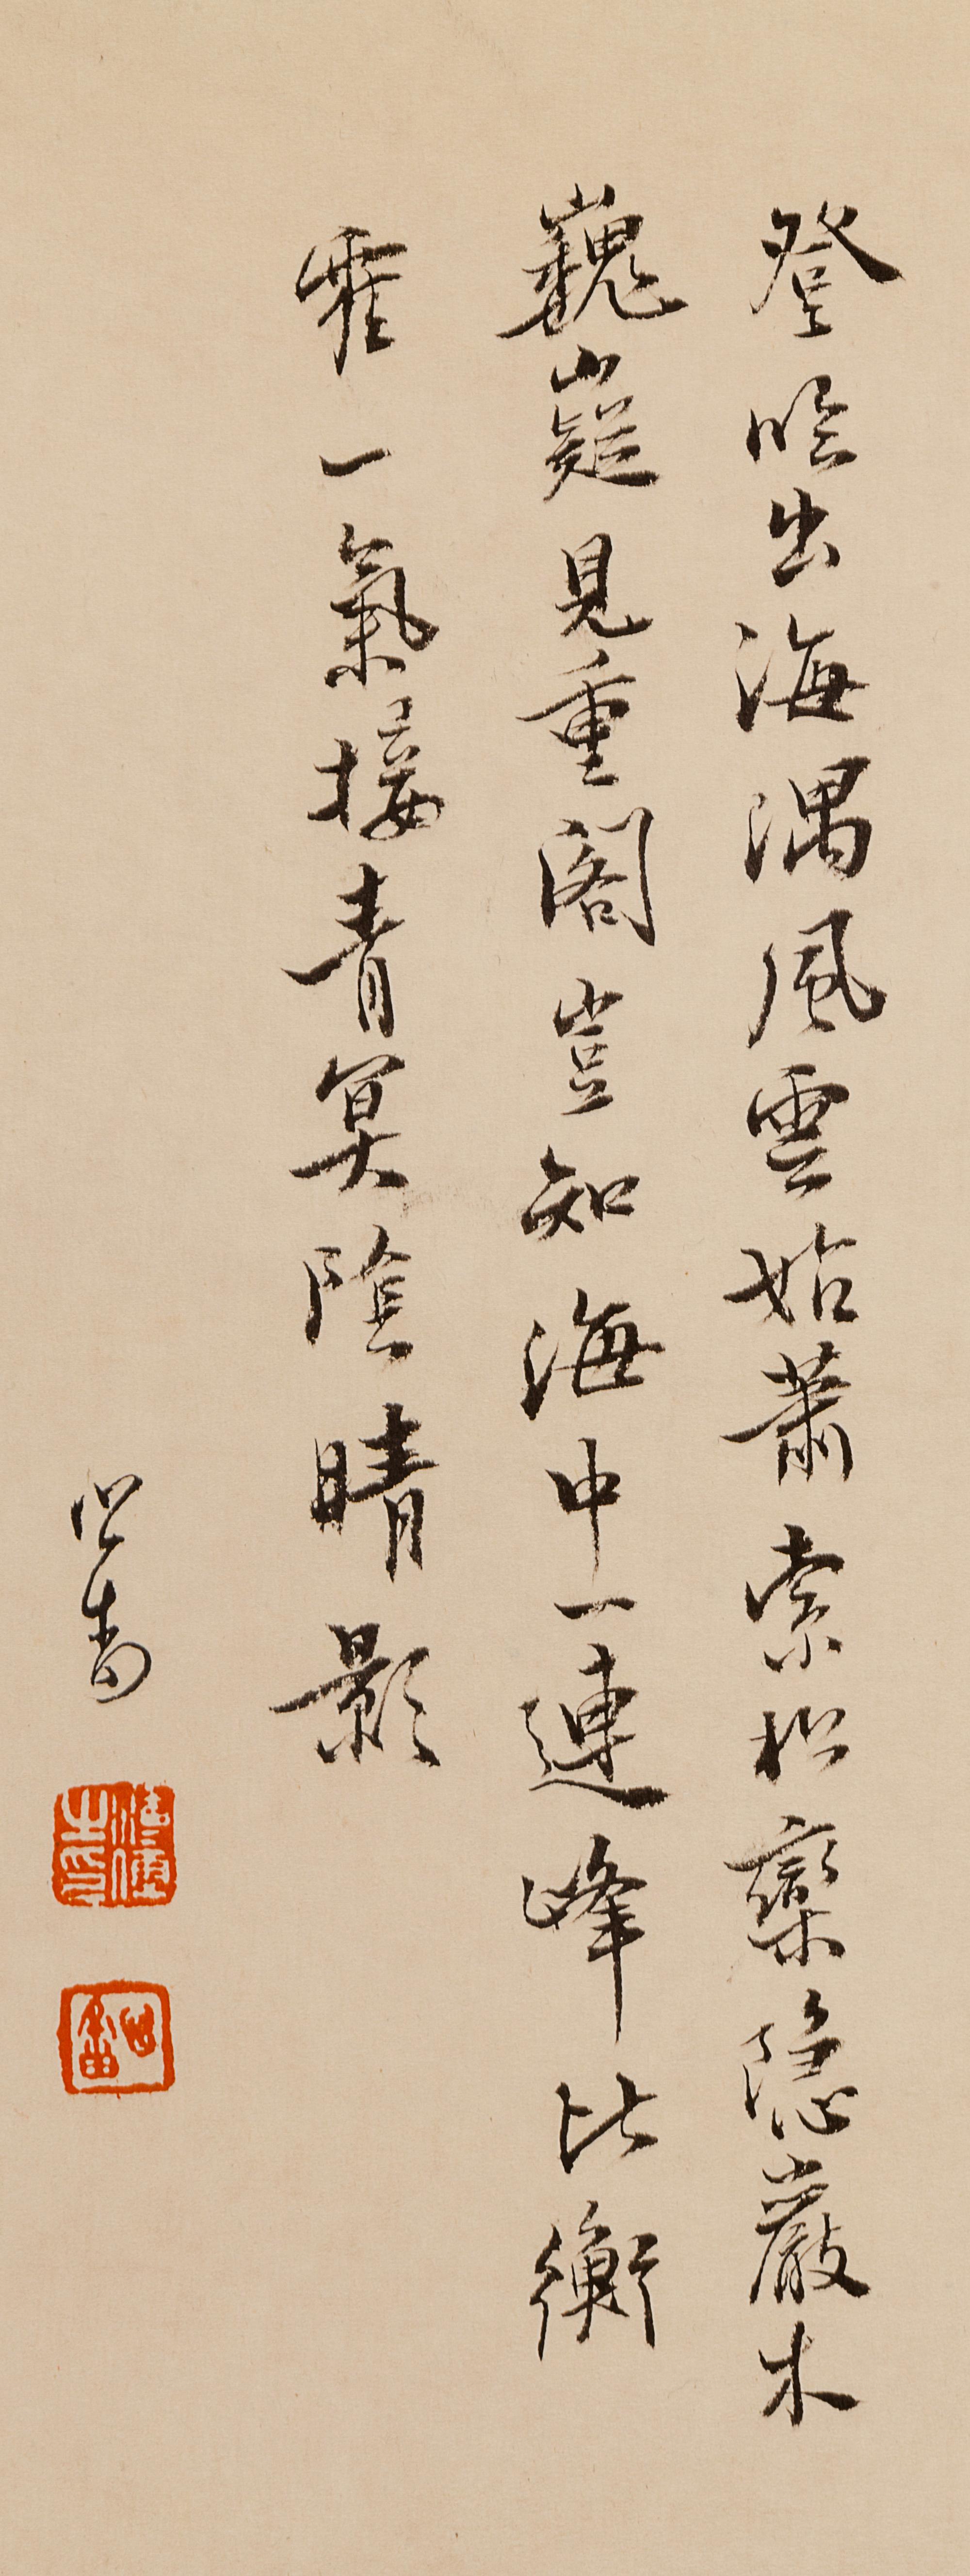 登吟出海隅風雲始蕭索松巒隱巖木
巍嶷見重閣豈知海中一連峰比衡
霍一氣接青冥陰晴影
心畬
溥儒之印